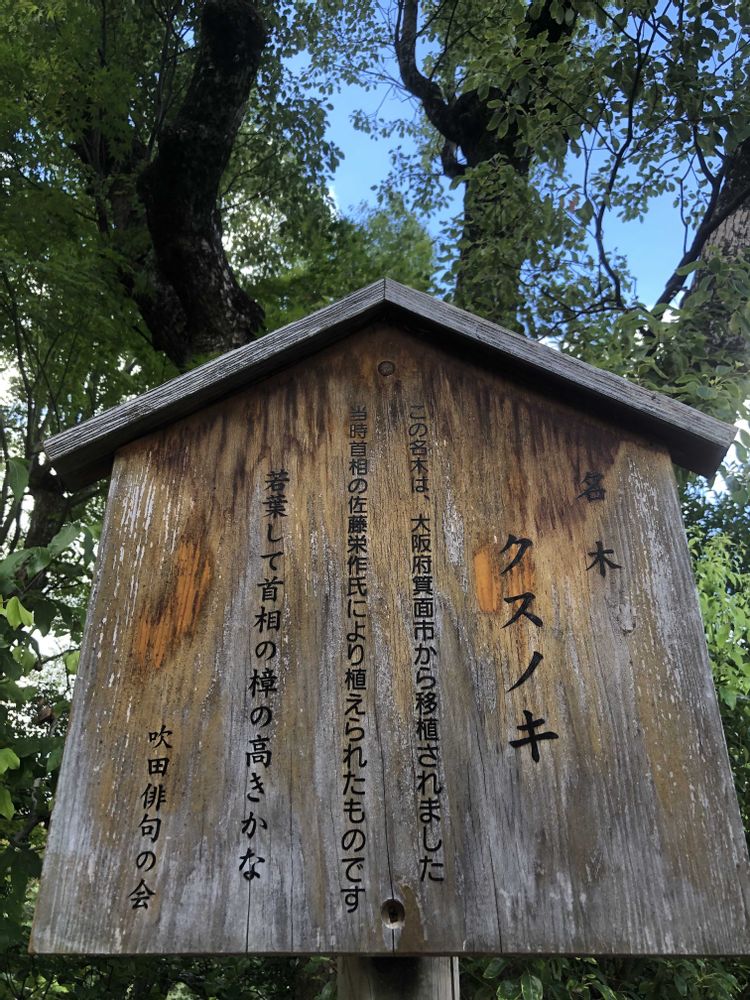 名木
クスノキ
この名木は、大阪府箕面市から移植されました
当時首相の佐藤栄作氏により植えられたものです
若葉して首相の樟の高きかな
吹田俳句の会